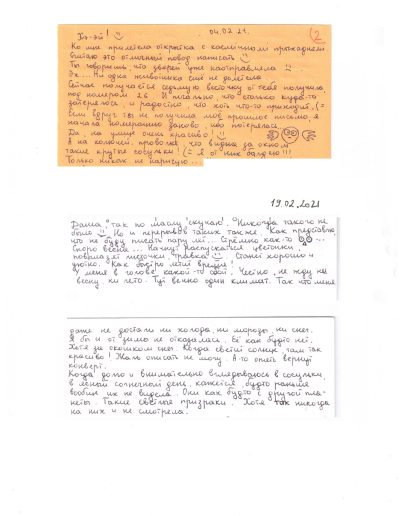 Хэ-эй!
04.02.21.
(2
Ко мне прилетела открытка с космичным приходнем
Считаю это отличный повод написать
Ты говоришь что зверей уже наотправляла
Эх... Ни одна животинка ещё не долетела
Сейчас получается седьмую весточку от тебя получила,
под номером 26. И печально, что столько куда-то
затерялось, и радостно что хоть что-то приходит (=
Если вдруг ты не получила моё прошлое письмо, я
начала нумерацию заново, ибо потерялась.
Да, на улице очень красиво!
А на колючей проволке, что видна за окном
такие крутые сосульки! (= Я от них балдею!!!
Только никак не нарисую...
19.02.2021
Даша, так по маслу скучаю. Никогда такого не
было Но и перерывов таких также. Как представлю,
что не буду писать пару лет... Стрёмно как-то
Скоро весна... Начнут распускаться цветочки,
повылазят листочки, травка Станет хорошо и
уютно. Как быстро летит время!
У меня в голове какой-то сбой. Честно, не жду ни
весну ни лето. Тут вечно один климат. Так что меня
даже не достали ни холода, ни морозы, ни снег.
Я бы и от зимы не отказалась, её как будто нет.
Хотя за окошком снег. Когда светит солнце там так
красиво! Жаль описать не могу. А то опять вернут
конверт.
Когда долго и внимательно вглядываюсь в сосульки,
в ясный солнечный день, кажется, будто раньше
вообще их не видела. Они как будто с другой пла-
неты. Такие светлые призраки. Хотя так никогда
на них и не смотрела.